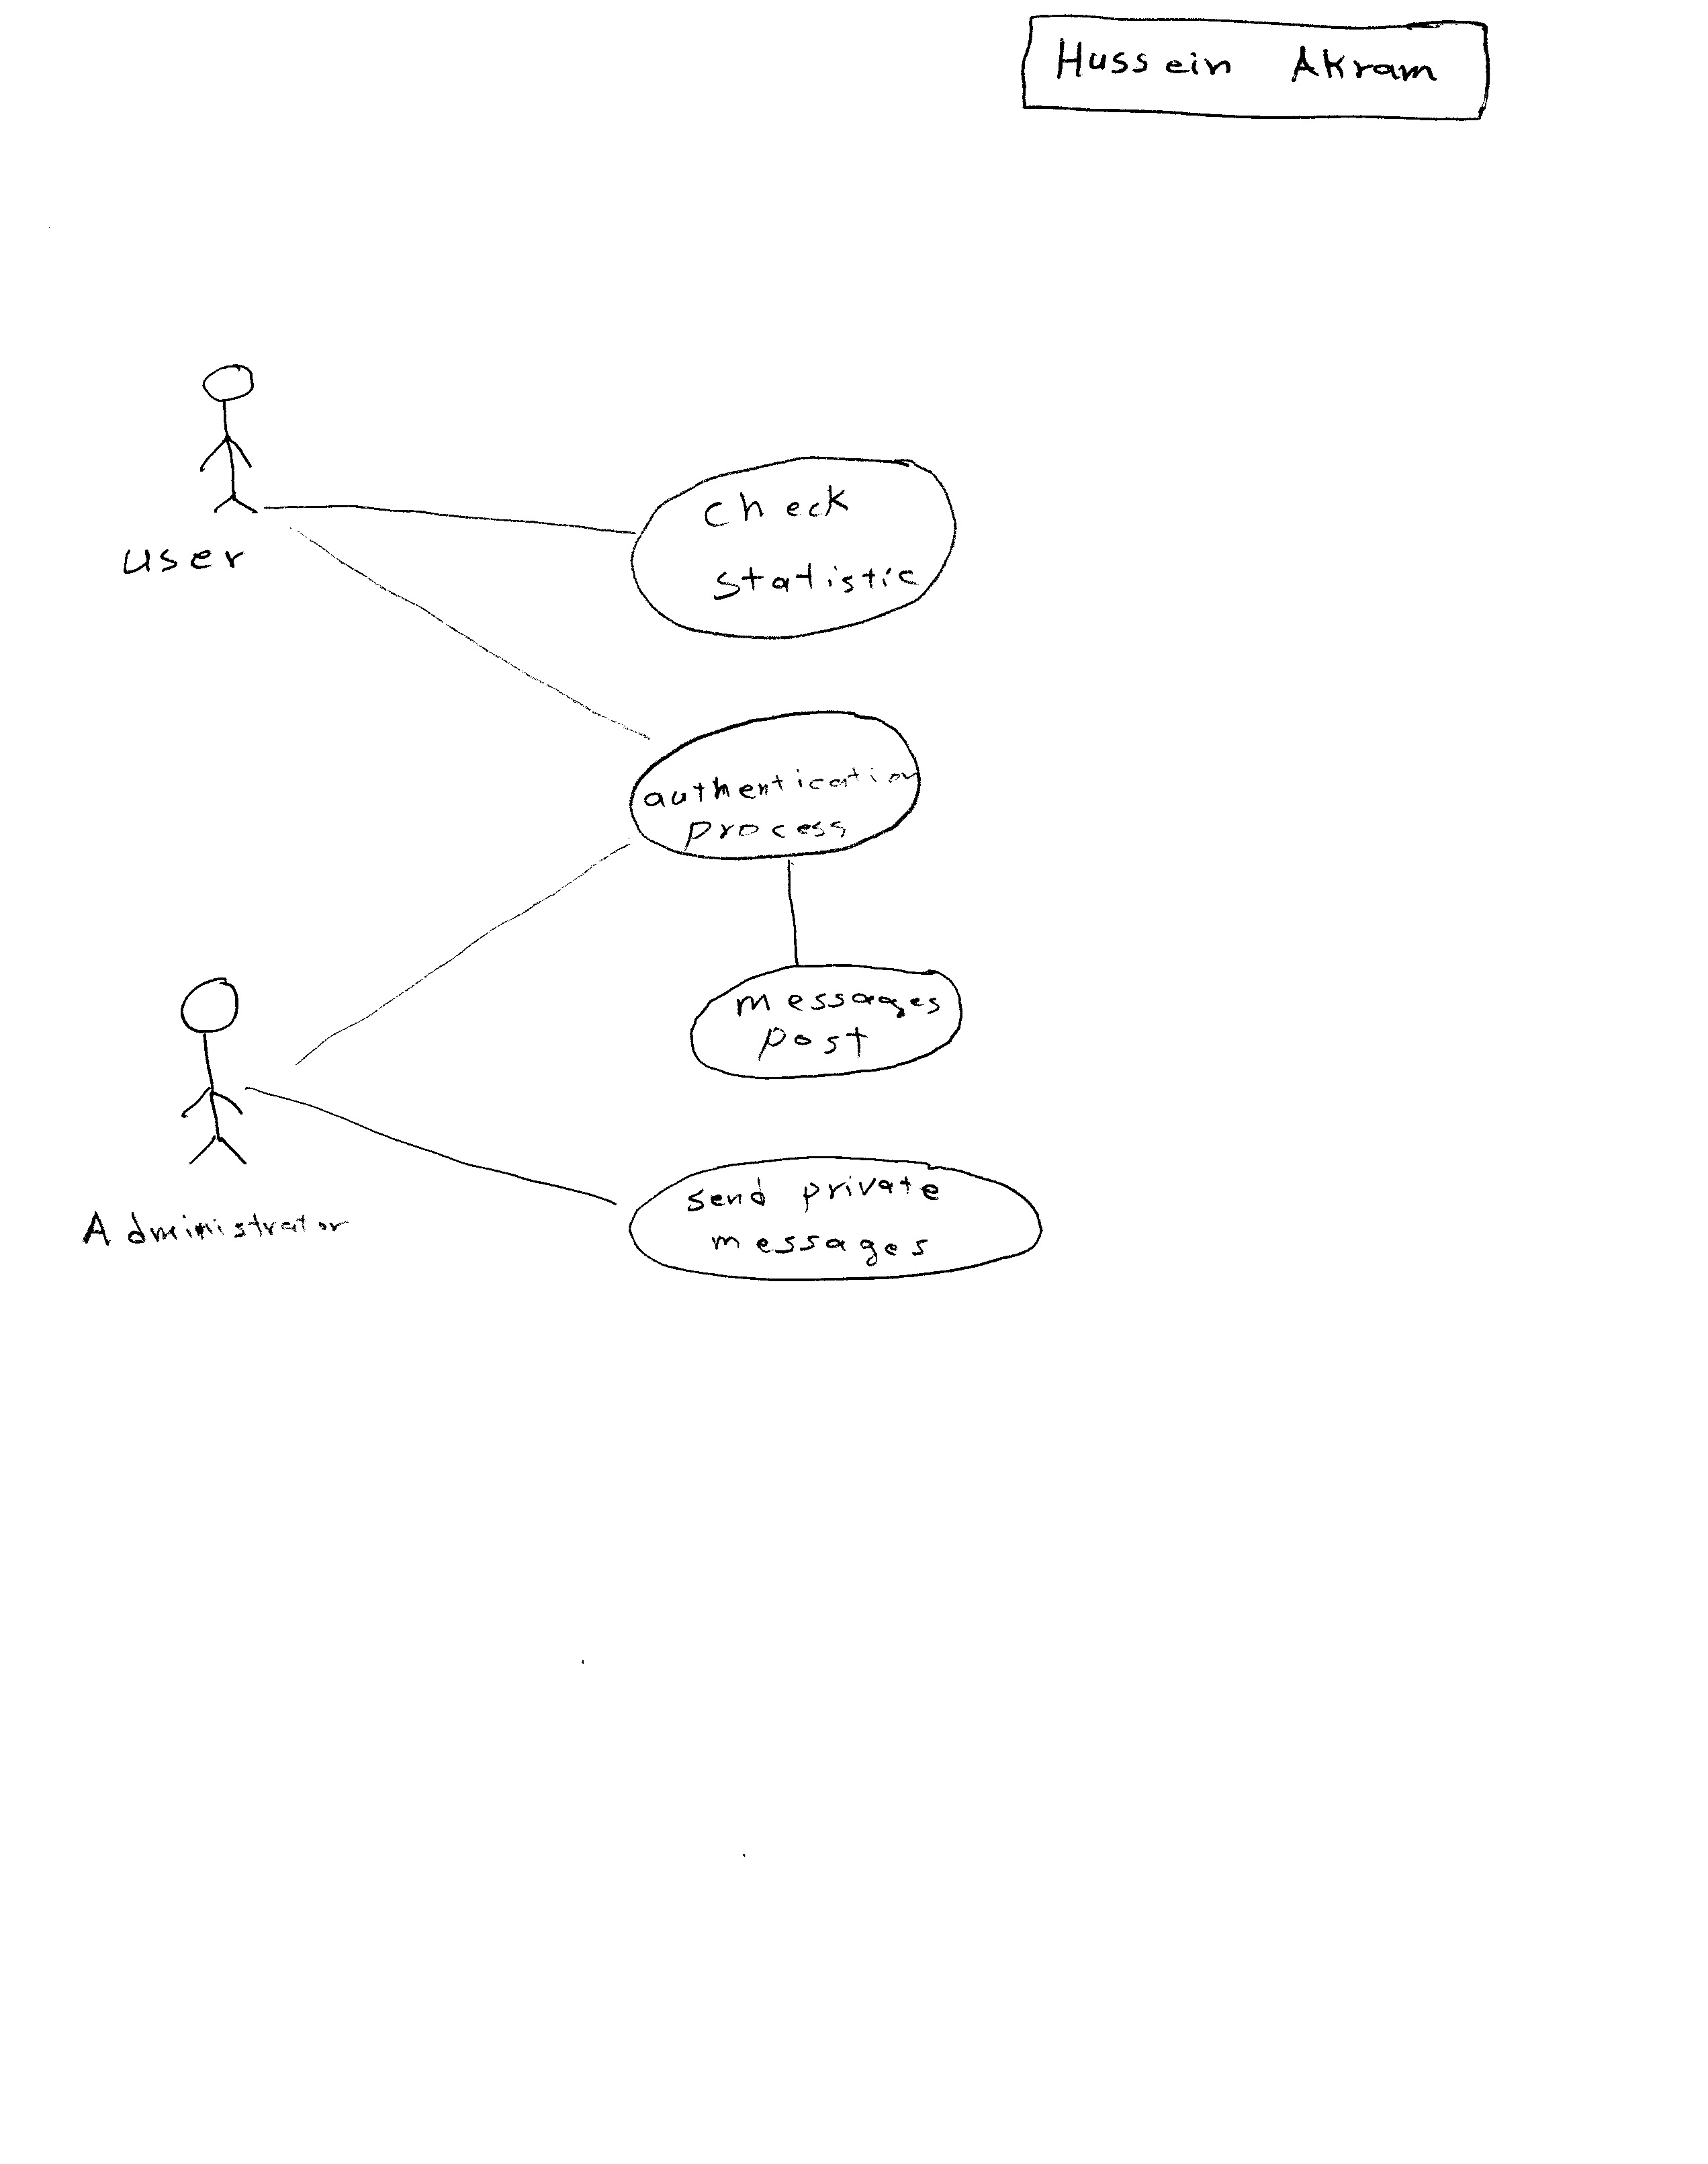 Hussein Akram
user
check
statistic
authentication
process
messages
post
Administrator
send private
messages